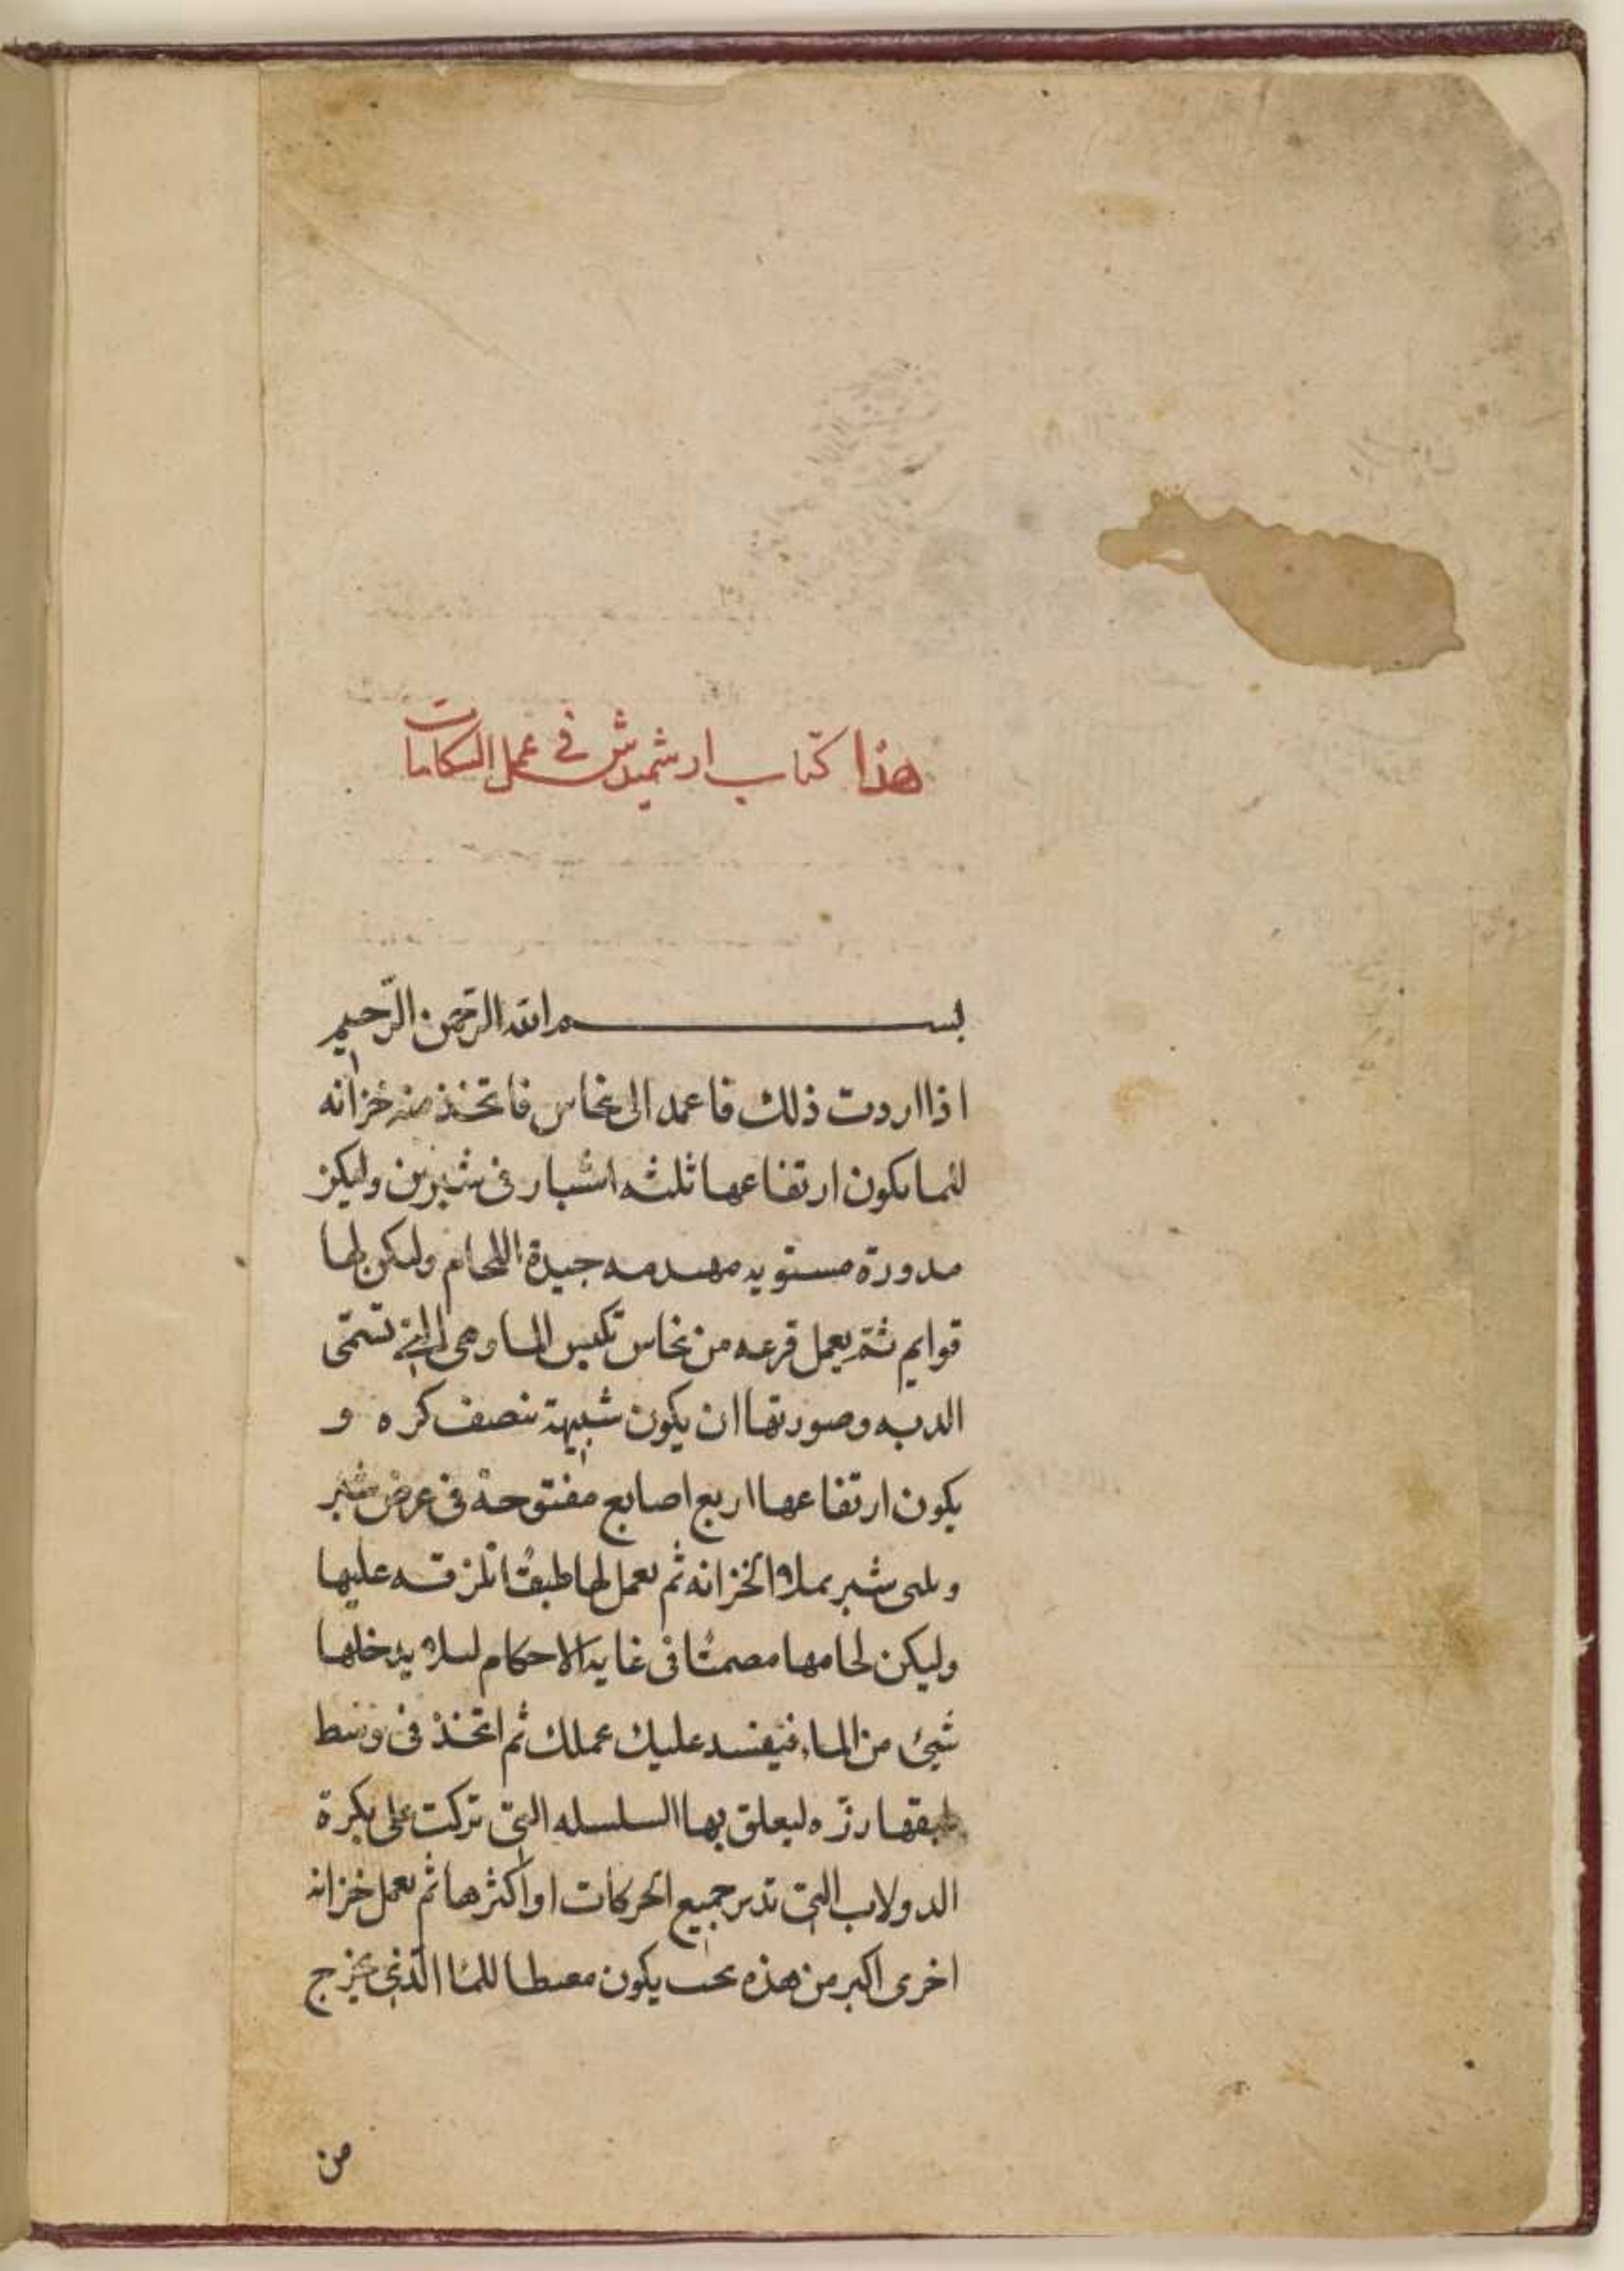 هذا كتاب ارشميدش في عمل البنكامات
بسم الله الرحمن الرحيم
اذا اردت ذلك فاعمد الى نحاس فاتخذ منه خزانه
للما يكون ارتفاعها ثلثه اشبار فى شبرين وليكن
مدورة مستويه مهندمه جيدة اللحام وليكن لها
قوايم ثم يعمل قرعه من نحاس تكبس الما وهى التى تسمى
الدبه وصورتها ان يكون شبيهة بنصف كره و
يكون ارتفاعها اربع اصابع مفتوحة فى عرض شبر
شبر بملاء الخزانه ثم يعمل لها طبقا تلزقه عليها
وليكن لحامها مصمتا فى غاية الاحكام ليلا يدخلها
شيئ من الماء فيفسد عليك عملك ثم اتخذ فى وسط
طبقها رزه ليعلق بها السلسله التى تركت على بكرة
الدولاب التى تدير جميع الحركات او اكثرها ثم يعمل خزانه
اخرى اكبر من هذه بحيث يكون للما الذى يخرج
من